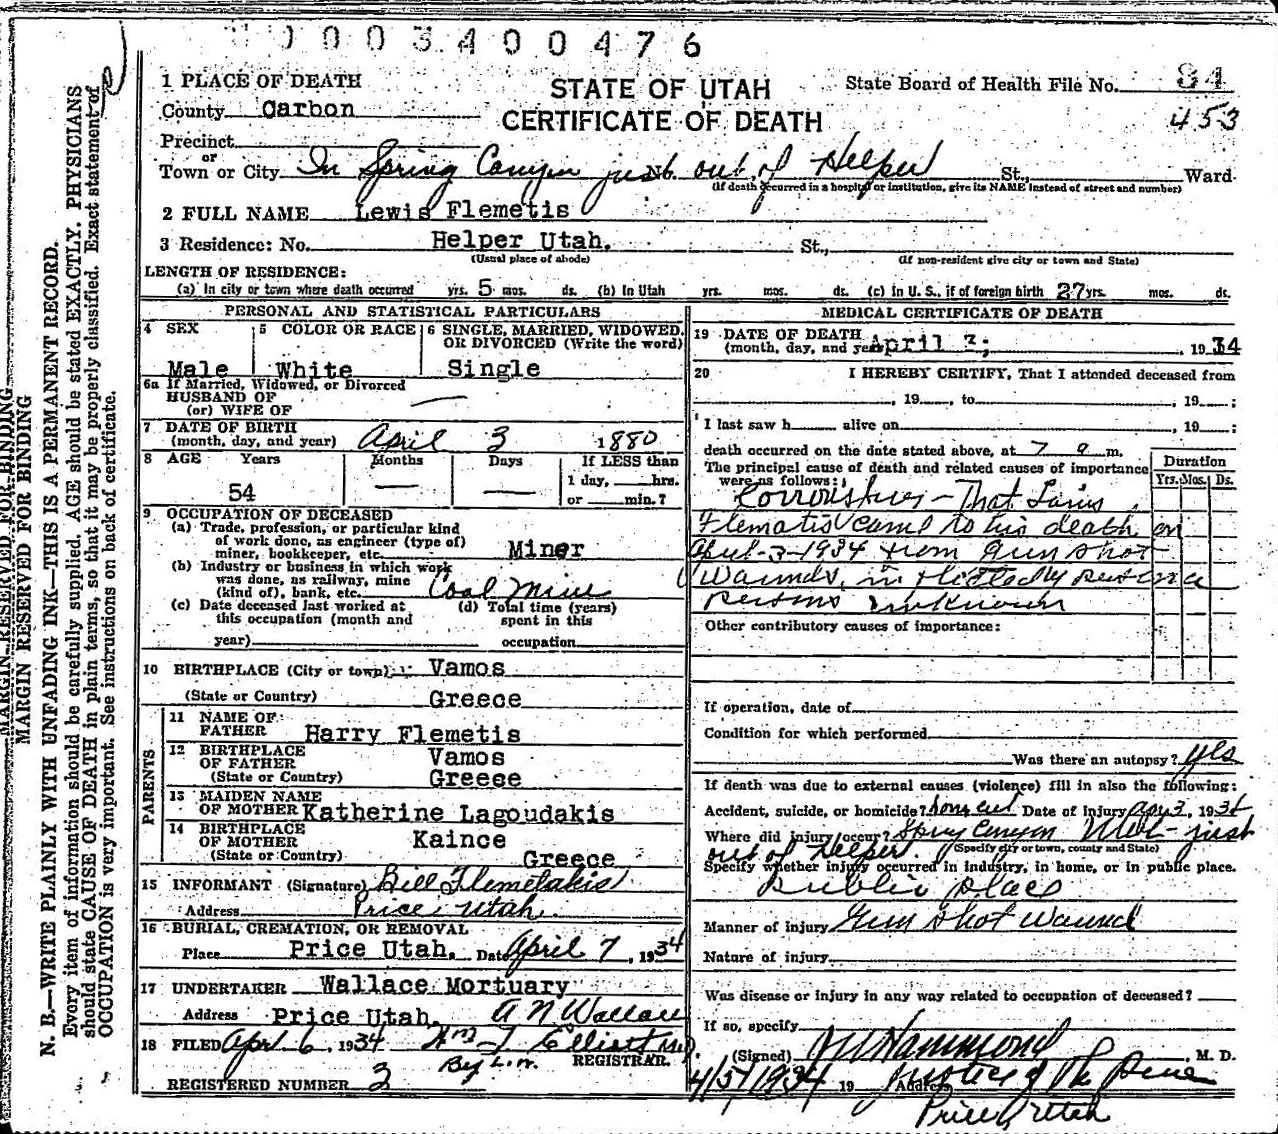 0003400476
1 PLACE OF DEATH
STATE OF UTAH
State Board of Health File No. 84
County Carbon
CERTIFICATE OF DEATH
453
Precinct
or
Town or City In Spring Canyon just out of Helper St., Ward
(If death occurred in a hospital or institution, give its NAME instead of street and number)
2 FULL NAME Lewis Flemetis
3 Residence: No. Helper Utah. St.,
(Usual place of abode) (If non-resident give city or town and State)
LENGTH OF RESIDENCE:
(a) In city or town where death occurred yrs. 5 mos. ds. (b) In Utah yrs. mos. ds. (c) In U. S., if of foreign birth 27 yrs. mos. ds.
PERSONAL AND STATISTICAL PARTICULARS
4 SEX
Male
5 COLOR OR RACE
White
6 SINGLE, MARRIED, WIDOWED, OR DIVORCED (Write the word)
Single
6a If Married, Widowed, or Divorced
HUSBAND OF
(or) WIFE OF
7 DATE OF BIRTH
(month, day, and year) April 3 1880
8 AGE Years Months Days If LESS than
1 day, hrs.
54 — — or min.?
9 OCCUPATION OF DECEASED
(a) Trade, profession, or particular kind
of work done, as engineer (type of)
miner, bookkeeper, etc. Miner
(b) Industry or business in which work
was done, as railway, mine
(kind of), bank, etc. Coal Mine
(c) Date deceased last worked at
this occupation (month and
year)
(d) Total time (years)
spent in this
occupation
10 BIRTHPLACE (City or town) Vamos
(State or Country) Greece
PARENTS
11 NAME OF
FATHER Harry Flemetis
12 BIRTHPLACE
OF FATHER Vamos
(State or Country) Greece
13 MAIDEN NAME
OF MOTHER Katherine Lagoudakis
14 BIRTHPLACE
OF MOTHER Kaince
(State or Country) Greece
15 INFORMANT (Signature) Bill Flemetakis
Address Price Utah.
16 BURIAL, CREMATION, OR REMOVAL
Place Price Utah. Date April 7, 1934
17 UNDERTAKER Wallace Mortuary
Address Price Utah. A N Wallace
18 FILED Apr. 6, 1934 Elliott MD.
By REGISTRAR.
REGISTERED NUMBER 3
MEDICAL CERTIFICATE OF DEATH
19 DATE OF DEATH
(month, day, and year) April 1934
20 I HEREBY CERTIFY, That I attended deceased from
, 19 , to , 19 ;
I last saw h alive on , 19 ;
death occurred on the date stated above, at 7 9 m.
The principal cause of death and related causes of importance
were as follows:
Duration
Yrs. Mos. Ds.
That
Flematis came to his death on
April-3-1934 from gun shot
wounds, inflicted by person or
persons unknown
Other contributory causes of importance:
If operation, date of
Condition for which performed
Was there an autopsy? yes
If death was due to external causes (violence) fill in also the following:
Accident, suicide, or homicide? Date of injury Apr 3, 1934
Where did injury occur? Spring Canyon Utah - just
out of Helper. (Specify city or town, county and State)
Specify whether injury occurred in industry, in home, or in public place.
Public place
Manner of injury Gun shot wound
Nature of injury
Was disease or injury in any way related to occupation of deceased?
If so, specify
(Signed) Hammond, M. D.
4/5/1934 19 Address Justice of the Peace
Price Utah
MARGIN RESERVED FOR BINDING
MARGIN RESERVED FOR BINDING
N. B.—WRITE PLAINLY WITH UNFADING INK—THIS IS A PERMANENT RECORD.
Every item of information should be carefully supplied. AGE should be stated EXACTLY. PHYSICIANS
should state CAUSE OF DEATH in plain terms, so that it may be properly classified. Exact statement of
OCCUPATION is very important. See instructions on back of certificate.